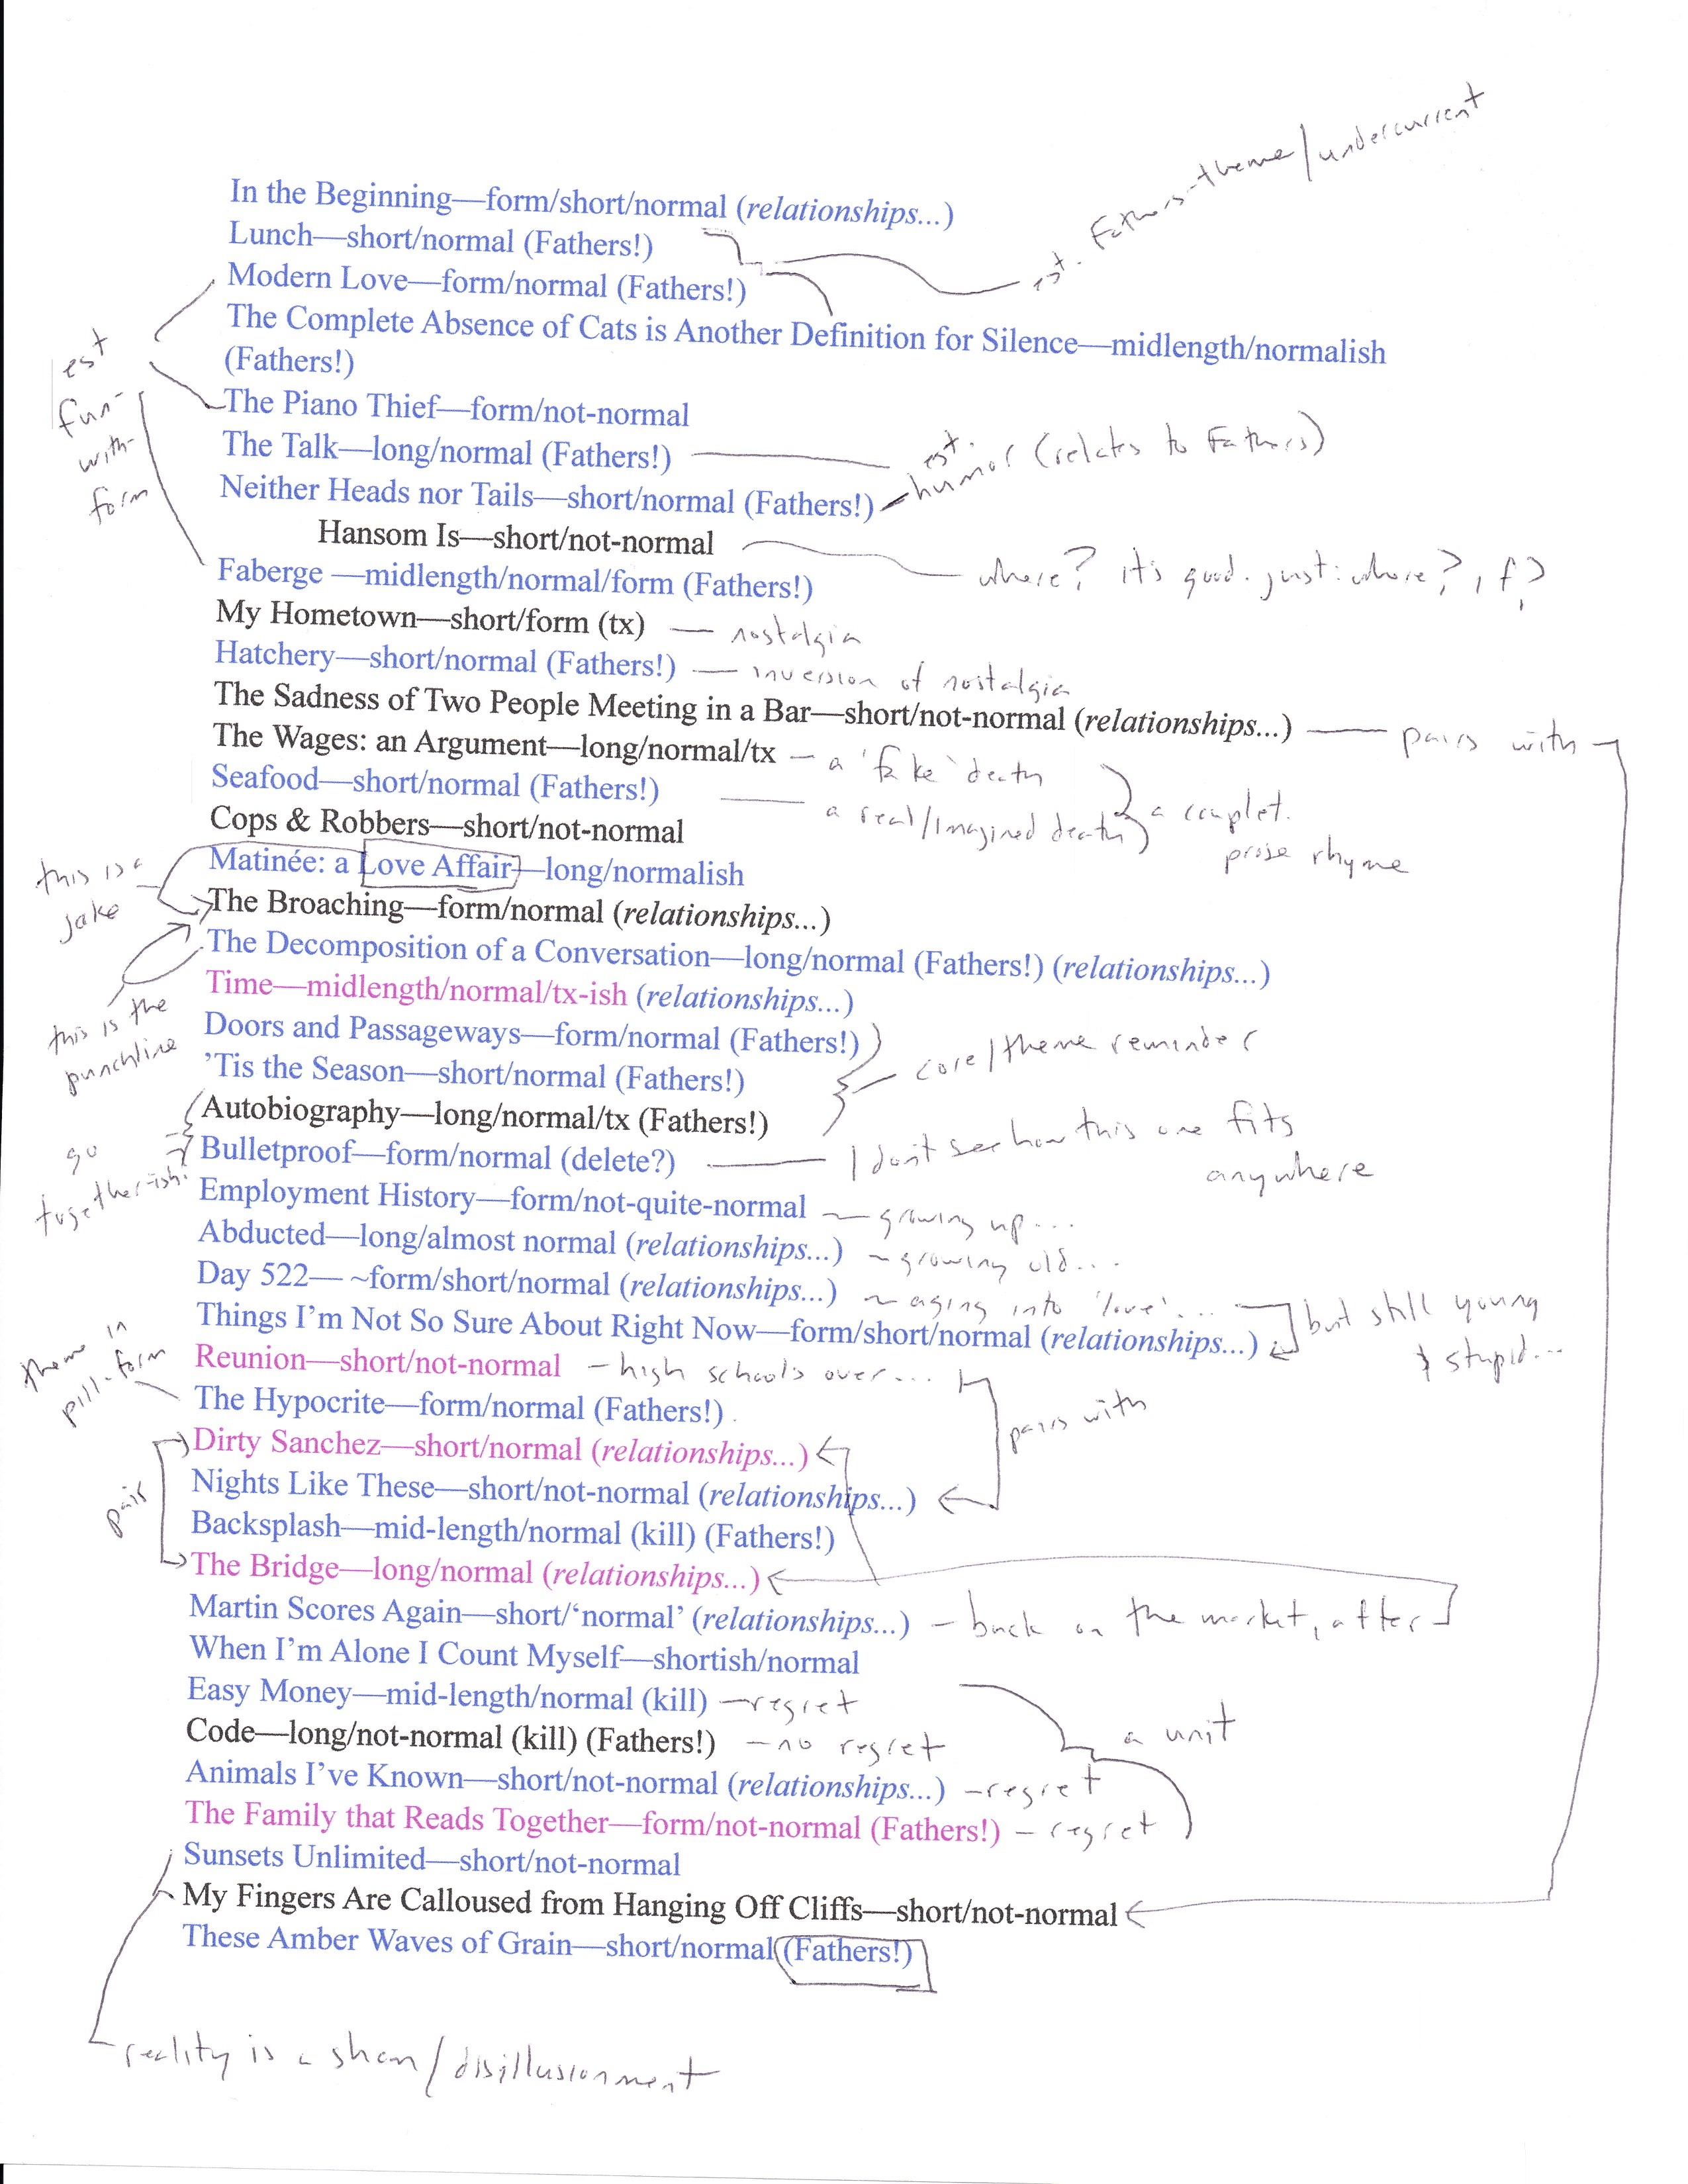 est. Fathers-theme/undercurrent
In the Beginning—form/short/normal (relationships...)
Lunch—short/normal (Fathers!)
Modern Love—form/normal (Fathers!)
The Complete Absence of Cats is Another Definition for Silence—midlength/normalish
(Fathers!)
est
fun-
with-
form
The Piano Thief—form/not-normal
The Talk—long/normal (Fathers!)
est.
humor (relates to Fathers)
Neither Heads nor Tails—short/normal (Fathers!)
Hansom Is—short/not-normal
where? it's good. just: where?, if?
Faberge —midlength/normal/form (Fathers!)
My Hometown—short/form (tx) — nostalgia
Hatchery—short/normal (Fathers!) — inversion of nostalgia
The Sadness of Two People Meeting in a Bar—short/not-normal (relationships...) — pairs with
The Wages: an Argument—long/normal/tx — a 'fake' death
Seafood—short/normal (Fathers!) — a real/imagined death
a couplet.
prose rhyme
Cops & Robbers—short/not-normal
Matinée: a Love Affair—long/normalish
this is a
joke
The Broaching—form/normal (relationships...)
The Decomposition of a Conversation—long/normal (Fathers!) (relationships...)
Time—midlength/normal/tx-ish (relationships...)
this is the
punchline
Doors and Passageways—form/normal (Fathers!)
core/theme reminder
’Tis the Season—short/normal (Fathers!)
Autobiography—long/normal/tx (Fathers!)
go
together-ish.
Bulletproof—form/normal (delete?) — I don't see how this one fits
anywhere
Employment History—form/not-quite-normal — growing up...
Abducted—long/almost normal (relationships...) ~ growing old...
Day 522— ~form/short/normal (relationships...) ~ aging into 'love'...
but still young
& stupid...
Things I’m Not So Sure About Right Now—form/short/normal (relationships...)
Reunion—short/not-normal — high school's over...
theme in
pill-form
The Hypocrite—form/normal (Fathers!)
pairs with
Dirty Sanchez—short/normal (relationships...)
pair
Nights Like These—short/not-normal (relationships...)
Backsplash—mid-length/normal (kill) (Fathers!)
The Bridge—long/normal (relationships...)
Martin Scores Again—short/‘normal’ (relationships...) — back on the market, after
When I’m Alone I Count Myself—shortish/normal
Easy Money—mid-length/normal (kill) — regret
Code—long/not-normal (kill) (Fathers!) — no regret
a unit
Animals I’ve Known—short/not-normal (relationships...) — regret
The Family that Reads Together—form/not-normal (Fathers!) — regret
Sunsets Unlimited—short/not-normal
My Fingers Are Calloused from Hanging Off Cliffs—short/not-normal
These Amber Waves of Grain—short/normal (Fathers!)
reality is a sham/disillusionment